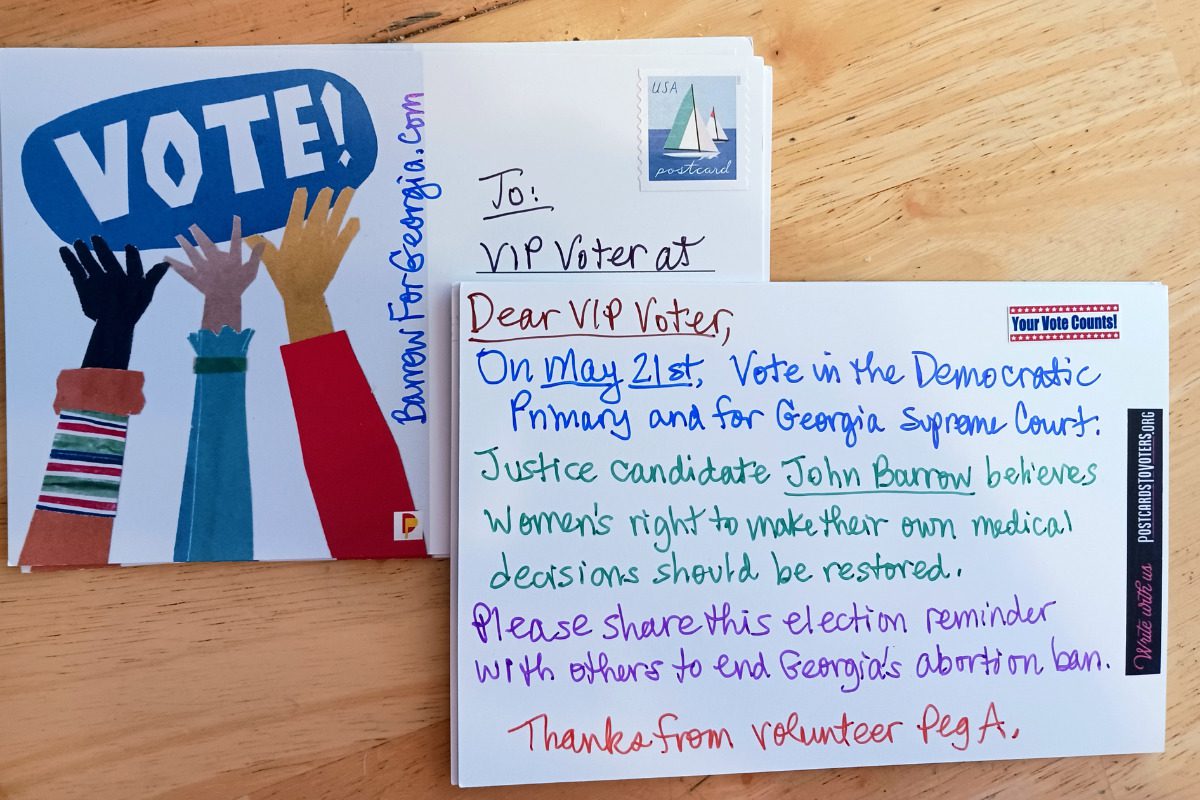 VOTE!
BarrowForGeorgia.com
USA
postcard
To:
VIP Voter at
Dear VIP Voter,
Your Vote Counts!
On May 21st, Vote in the Democratic
Primary and for Georgia Supreme Court.
Justice candidate John Barrow believes
Women's right to make their own medical
decisions should be restored.
Please share this election reminder
with others to end Georgia's abortion ban.
Thanks from volunteer Peg A.
Write with us POSTCARDSTOVOTERS.ORG